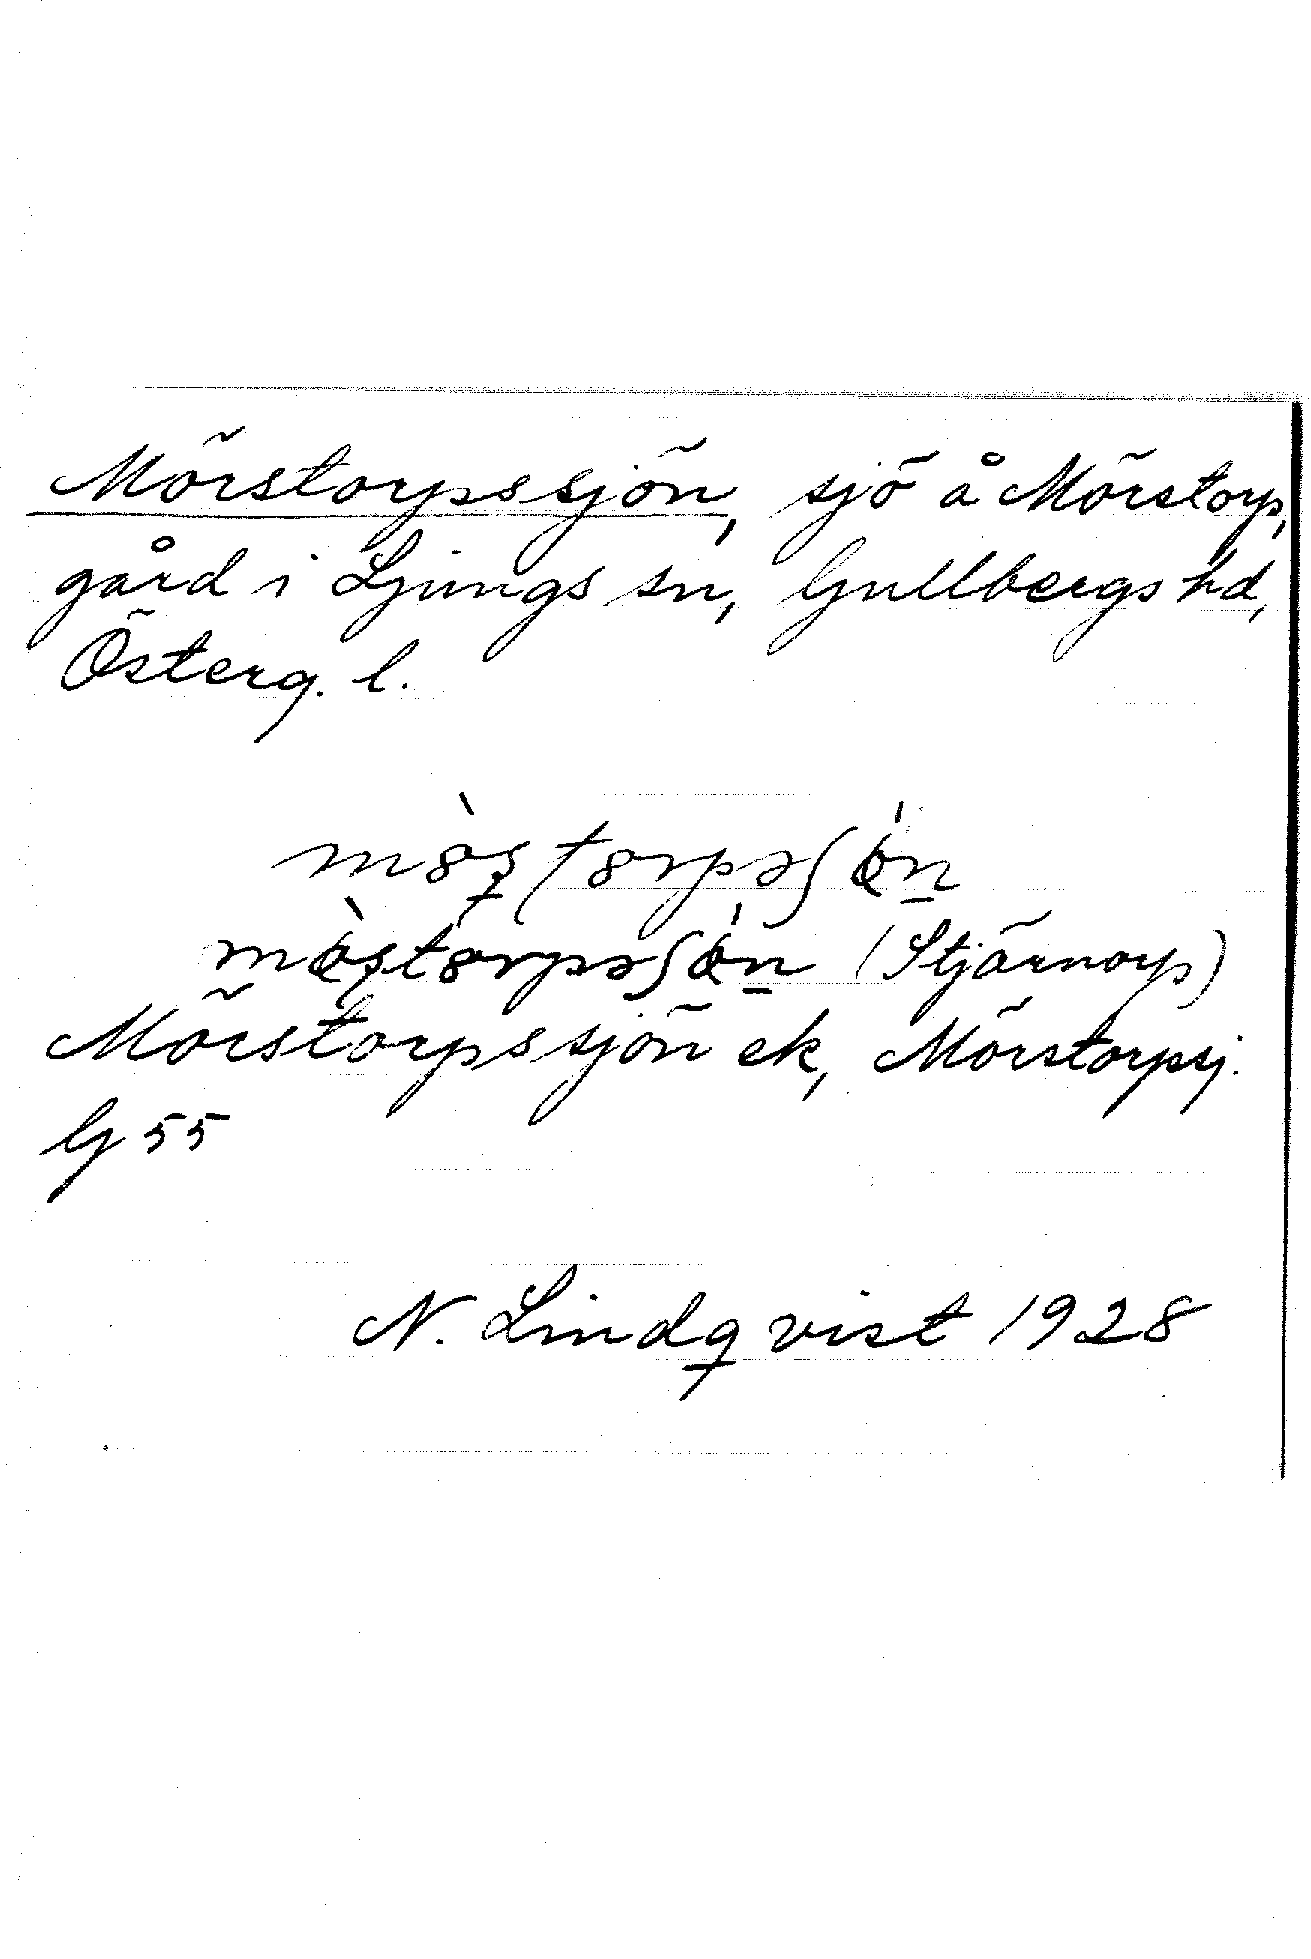 Mörstorpssjön, sjö å Mörstorp,
gård i Ljungs sn, Gullbergs hd,
Österg. l.
(Stjärnorp)
Mörstorpssjön ek, Mörstorpsj.
G 55
N. Lindqvist 1928